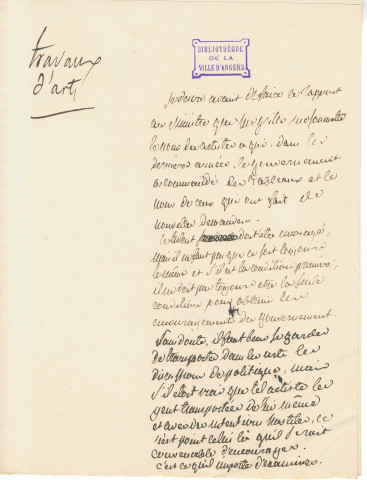 travaux
d'art
BIBLIOTHÈQUE
DE LA
VILLE D'ANGERS
Je désire avant de faire ce rapport
au Ministre que
le nom des artistes à qui, dans les
dernières années, le gouvernement
a commandé des tableaux et le
nom de ceux qui ont fait de
nouvelles demandes.
Le talent doit être encouragé,
mais il ne faut pas que ce soit toujours
le même et s'il est la condition première,
il ne doit pas toujours être la seule
condition pour obtenir les
encouragements du gouvernement.
Sans doute, il faut bien se garder
de transporter dans les arts les
discussions de politique, mais
s'il était vrai que les artistes les
y ont transportées de lui même
et avec des intentions hostiles, ce
n'est point celui là qu'il serait
convenable d'encourager.
c'est ce qu'il importe d'examiner.